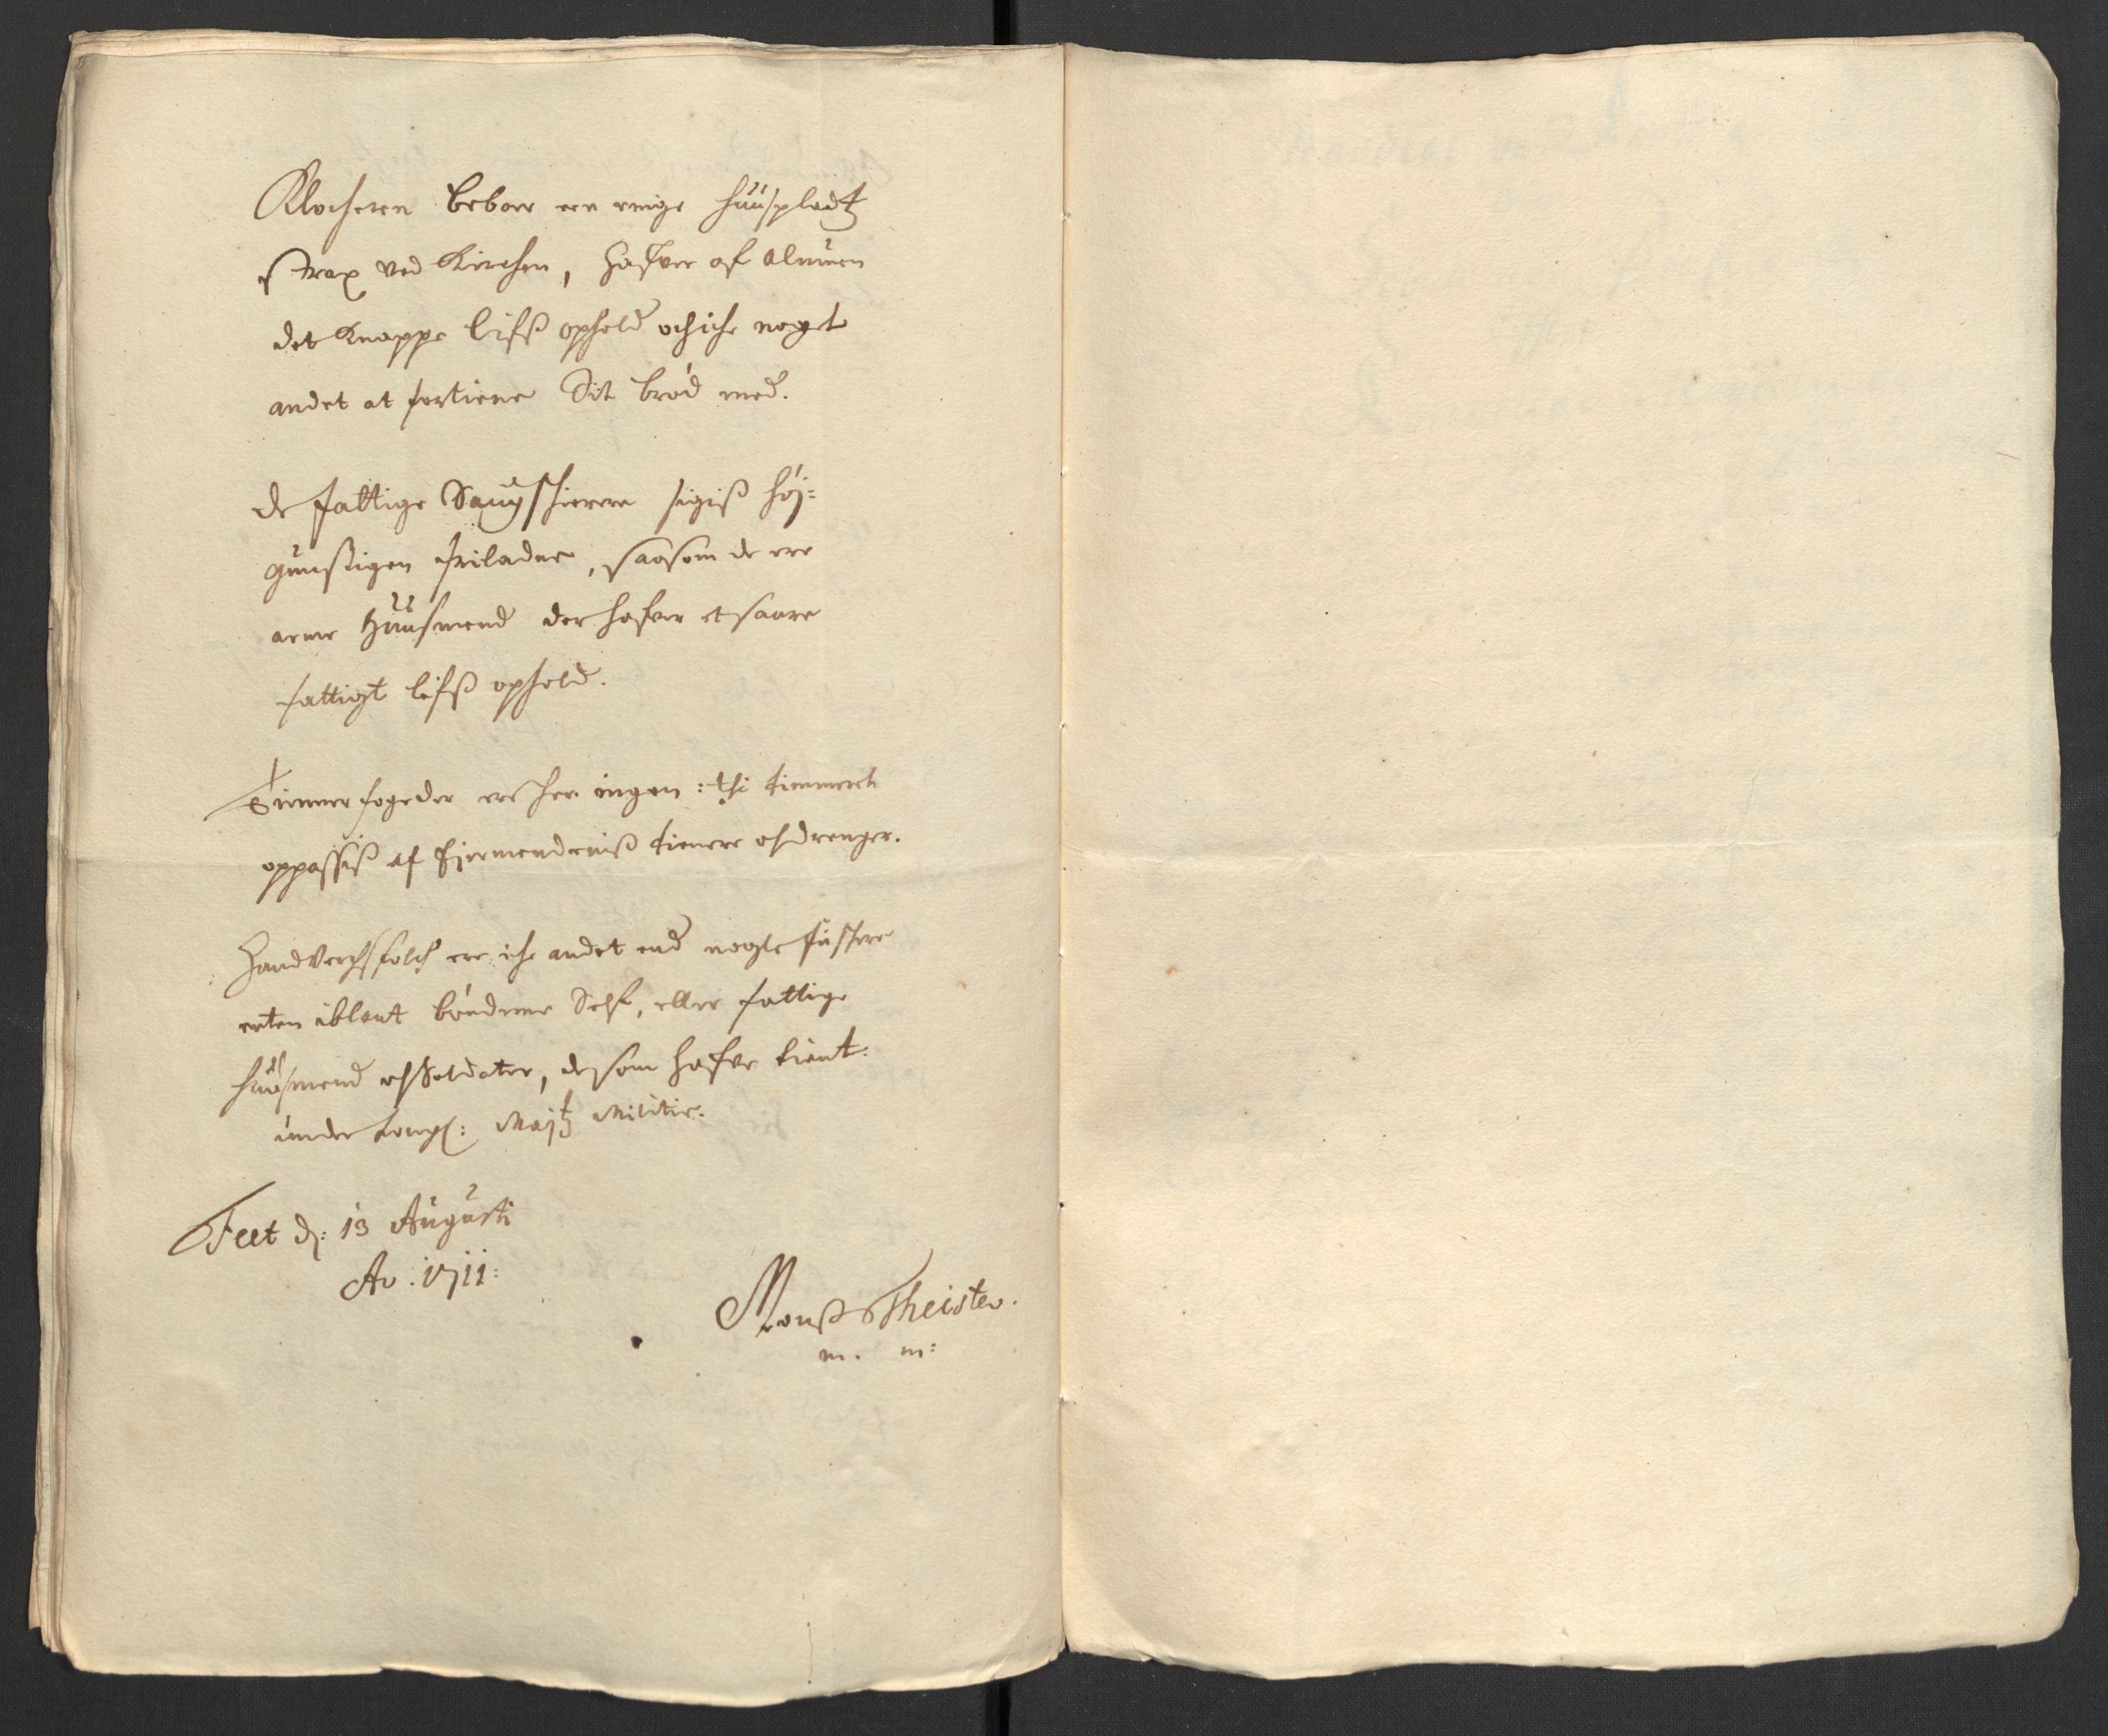 Klocheren beboer een ringe huuspladtz
strax ved Kirchen, hafver af almuen
det knappe lifß ophold och iche noget
andet at fortiene Sit brød med.
de fattige Saugskierere sigiß høj=
gunstigen friladne, saasom de ere
arme Huusmend der hafver et saare
fattigt lifß ophold.
Timmerfogeder ere her ingen: thi timmeret
oppassiß af Eiermendeniß tienere och drenger.
Handverchsfolch ere iche andet end nogle fuskere
enten iblant bønderne Self, eller fattige
huusmend och Soldater, de som hafve tient
under Kongl: Maÿtz Militie.
Feet d: 13 Augusti
Ao. 1711:
Monß Theiste.
m. m: